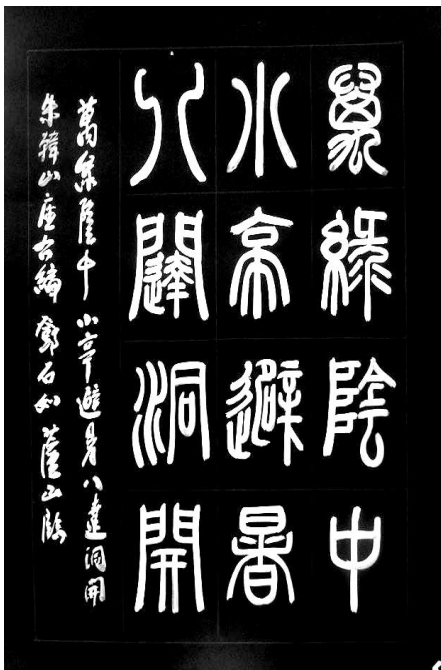 萬綠陰中
小亭避暑
八闥洞開
萬綠蔭中小亭避暑八達洞開
朱韓山座右編 鄧石如 蘆山臨